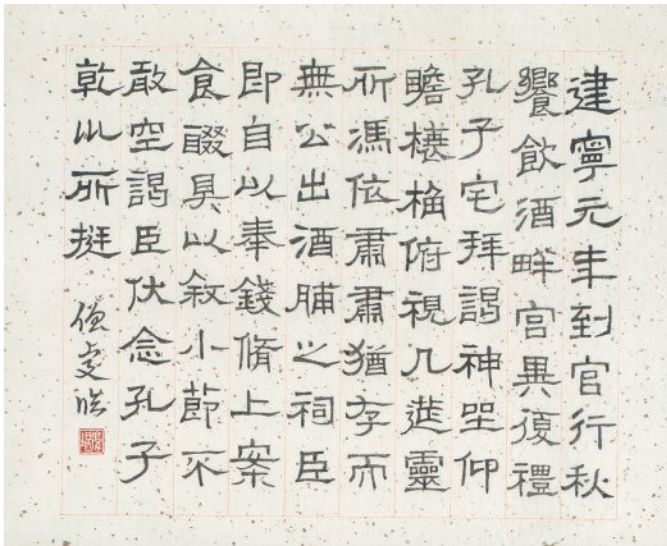 建寧元年到官行秋
饗飲酒畔宮異復禮
孔子宅拜謁神坐仰
瞻榱桷俯視几筵靈
所馮依肅肅猶存而
無公出酒脯之祠臣
即自以奉錢脩上案
食醊具以敘小節不
敢空謁臣伏念孔子
乾川所挺